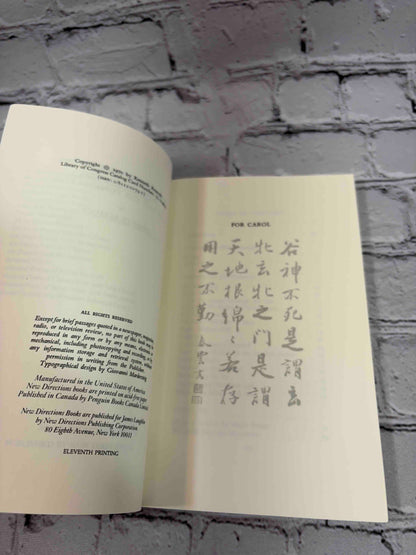 Copyright © 1970 by Kenneth
Library of Congress Catalog Card Number:
ALL RIGHTS RESERVED
Except for brief passages quoted in a newspaper, magazine,
radio, or television review, no part of this book may be
reproduced in any form or by any means, electronic or
mechanical, including photocopying and recording, or by
any information storage and retrieval system, without
permission in writing from the Publisher.
Typographical design by Giovanni Mardersteig
Manufactured in the United States of America
New Directions books are printed on acid-free paper.
Published in Canada by Penguin Books Canada Limited
New Directions Books are published for James Laughlin
by New Directions Publishing Corporation
80 Eighth Avenue, New York 10011
ELEVENTH PRINTING
FOR CAROL
谷神不死是謂玄
牝玄牝之門是謂
天地根綿〻若存
用之不勤